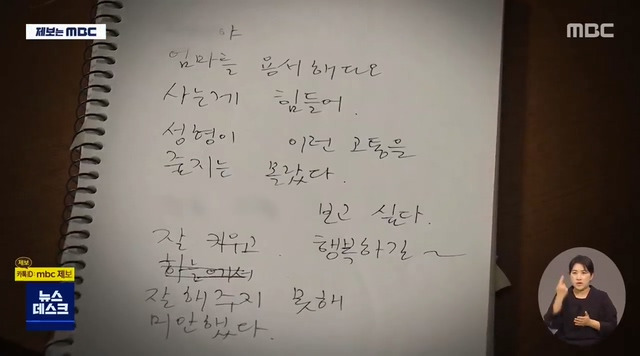 제보는 MBC
MBC
야
엄마를 용서해다오
사는게 힘들어.
성형이 이런 고통을
줄지는 몰랐다.
보고 싶다.
잘 키우고. 행복하길~
잘해주지 못해
미안했다.
제보
카톡ID mbc 제보
뉴스
데스크